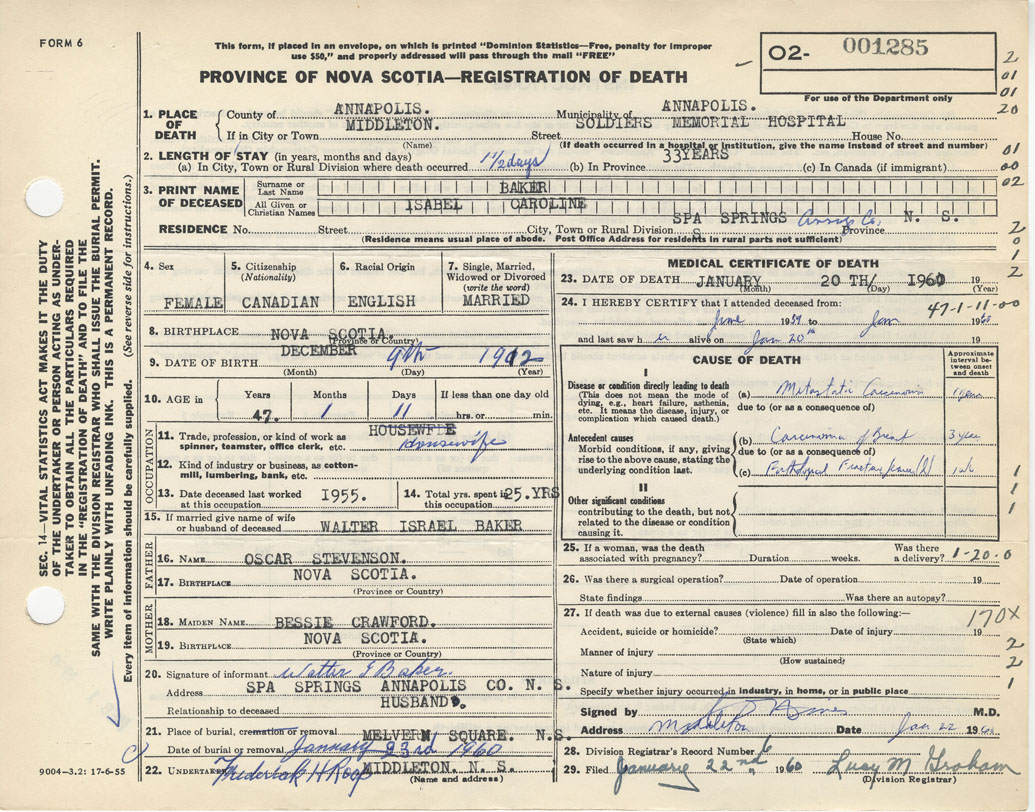 FORM 6
This form, if placed in an envelope, on which is printed "Dominion Statistics—Free, penalty for improper
use $50," and properly addressed will pass through the mail "FREE"
PROVINCE OF NOVA SCOTIA—REGISTRATION OF DEATH
02- 001285
For use of the Department only
2
01
01
20
01
00
02
2
0
1
2
1. PLACE OF DEATH
County of ANNAPOLIS. Municipality of ANNAPOLIS.
If in City or Town MIDDLETON. Street SOLDIERS MEMORIAL HOSPITAL House No.
(Name) (If death occurred in a hospital or institution, give the name instead of street and number)
2. LENGTH OF STAY (in years, months and days)
(a) In City, Town or Rural Division where death occurred 1 1/2 days (b) In Province 33YEARS (c) In Canada (if immigrant)
3. PRINT NAME OF DECEASED
Surname or Last Name BAKER
All Given or Christian Names ISABEL CAROLINE
RESIDENCE No. Street City, Town or Rural Division SPA SPRINGS Annap Co, N. S. Province
(Residence means usual place of abode. Post Office Address for residents in rural parts not sufficient)
4. Sex FEMALE
5. Citizenship (Nationality) CANADIAN
6. Racial Origin ENGLISH
7. Single, Married, Widowed or Divorced (write the word) MARRIED
8. BIRTHPLACE NOVA SCOTIA.
(Province or Country)
9. DATE OF BIRTH DECEMBER 9th 1912
(Month) (Day) (Year)
10. AGE in Years Months Days If less than one day old
47. 1 11 hrs. or min.
OCCUPATION
11. Trade, profession, or kind of work as spinner, teamster, office clerk, etc. HOUSEWFIE Housewife
12. Kind of industry or business, as cotton-mill, lumbering, bank, etc.
13. Date deceased last worked at this occupation 1955.
14. Total yrs. spent in this occupation 25. YRS
15. If married give name of wife or husband of deceased WALTER ISRAEL BAKER
FATHER
16. NAME OSCAR STEVENSON.
17. BIRTHPLACE NOVA SCOTIA.
(Province or Country)
MOTHER
18. MAIDEN NAME BESSIE CRAWFORD.
19. BIRTHPLACE NOVA SCOTIA.
(Province or Country)
20. Signature of informant Walter I Baker
Address SPA SPRINGS ANNAPOLIS CO. N. S.
Relationship to deceased HUSBAND.
21. Place of burial, cremation or removal MELVERN SQUARE. N.S.
Date of burial or removal January 23rd 1960
22. UNDERTAKER Frederick H Roop MIDDLETON, N. S.
(Name and address)
9004—3.2: 17-6-55
MEDICAL CERTIFICATE OF DEATH
23. DATE OF DEATH JANUARY 20 TH/ 1960 19
(Month) (Day) (Year)
47-1-11-00
24. I HEREBY CERTIFY that I attended deceased from:
June 1959 to Jan 1960
and last saw h er alive on Jan 20th 19
CAUSE OF DEATH
Approximate interval between onset and death
I
Disease or condition directly leading to death
(This does not mean the mode of dying, e.g., heart failure, asthenia, etc. It means the disease, injury, or complication which caused death.)
(a) Metastatic Carcinoma 1 year
due to (or as a consequence of)
Antecedent causes
Morbid conditions, if any, giving rise to the above cause, stating the underlying condition last.
(b) Carcinoma of Breast 3 year
due to (or as a consequence of)
(c) Pathological Fracture femur
II
Other significant conditions
contributing to the death, but not related to the disease or condition causing it.
1
1
1
25. If a woman, was the death associated with pregnancy? Duration weeks. Was there a delivery? 1-20.0
26. Was there a surgical operation? Date of operation 19
State findings Was there an autopsy?
27. If death was due to external causes (violence) fill in also the following:— 170X
Accident, suicide or homicide? Date of injury 19
(State which)
Manner of injury 2
(How sustained)
Nature of injury 2
Specify whether injury occurred in industry, in home, or in public place 1
Signed by M.D.
Address Middleton Date Jan 22 1960
28. Division Registrar's Record Number 6
29. Filed January 22nd 1960 Lucy M Graham
(Division Registrar)
SEC. 14—VITAL STATISTICS ACT MAKES IT THE DUTY
OF THE UNDERTAKER OR PERSON ACTING AS UNDER-
TAKER TO OBTAIN ALL THE PARTICULARS REQUIRED
IN THE "REGISTRATION OF DEATH" AND TO FILE THE
SAME WITH THE DIVISION REGISTRAR WHO SHALL ISSUE THE BURIAL PERMIT.
WRITE PLAINLY WITH UNFADING INK. THIS IS A PERMANENT RECORD.
Every item of information should be carefully supplied. (See reverse side for instructions.)